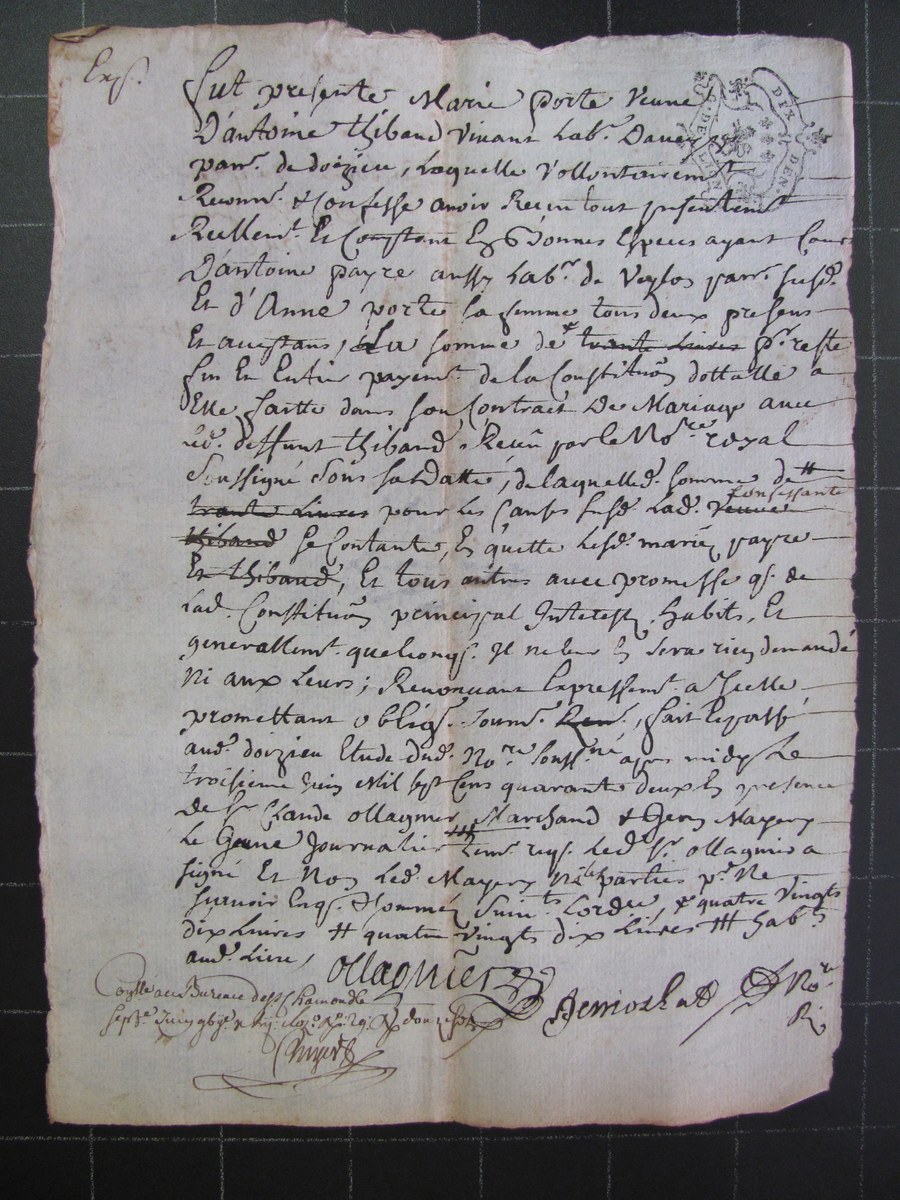 Exp.
Fut présente Marie porte veuve
D'antoine thibaud vivant Lab.r
parr. de doizieu, Laquelle vollontairemt
Reconn.t & Confesse avoir Receu tout presentemt
Reellem.t Et Contant En bonnes Especes ayant Cours
D'antoine payre aussy Lab.r de parr. susd.
Et d'Anne porte sa femme tous deux presens
Et acceptans, La somme de trante Livres p.r reste
fin Et Entier payem.t de la Constitu͠on dottalle a
Elle faitte dans son Contract De Mariage avec
deffunt thibaud Receu par le No.re royal
soussigné sous sa datte, de laquelled. somme de #
trante Livres pour les Causes susd. Lad. veuve confessante
thibaud se Contante, En quitte Lesd. mariez payre
Et thibaud, Et tous autres avec promesse q. de
Lad. Constitu͠on principal Interest, habits, Et
generallem.t quelconq. Il ne leur En sera rien demandé
Ni aux Leurs; Renoncant Expressem.t a Icelle
promettant oblig. soum. Ren., fait Et passé
aud. doizieu Etude dud. No.re souss.né apres midy Le
troisieme Juin Mil sept Cens quarante deux En presence
de S.r Claude ollagnier Marchand & Jean Mayery
Le Jeune Journalier tem. req. Led. S.r ollagnier a
signé Et Non Led. Mayery Ni les parties p.r Ne
scavoir Enq. & sommés suiv.t L'ordre, & quatre vingts
dix Livres # quatre vingts dix Livres ### hab.ts
aud. Lieu,
ollagnier
No.re
R.
Conllé au Bureau de St Chamond Le
sept.e Juin douze s.
DIX DEN.